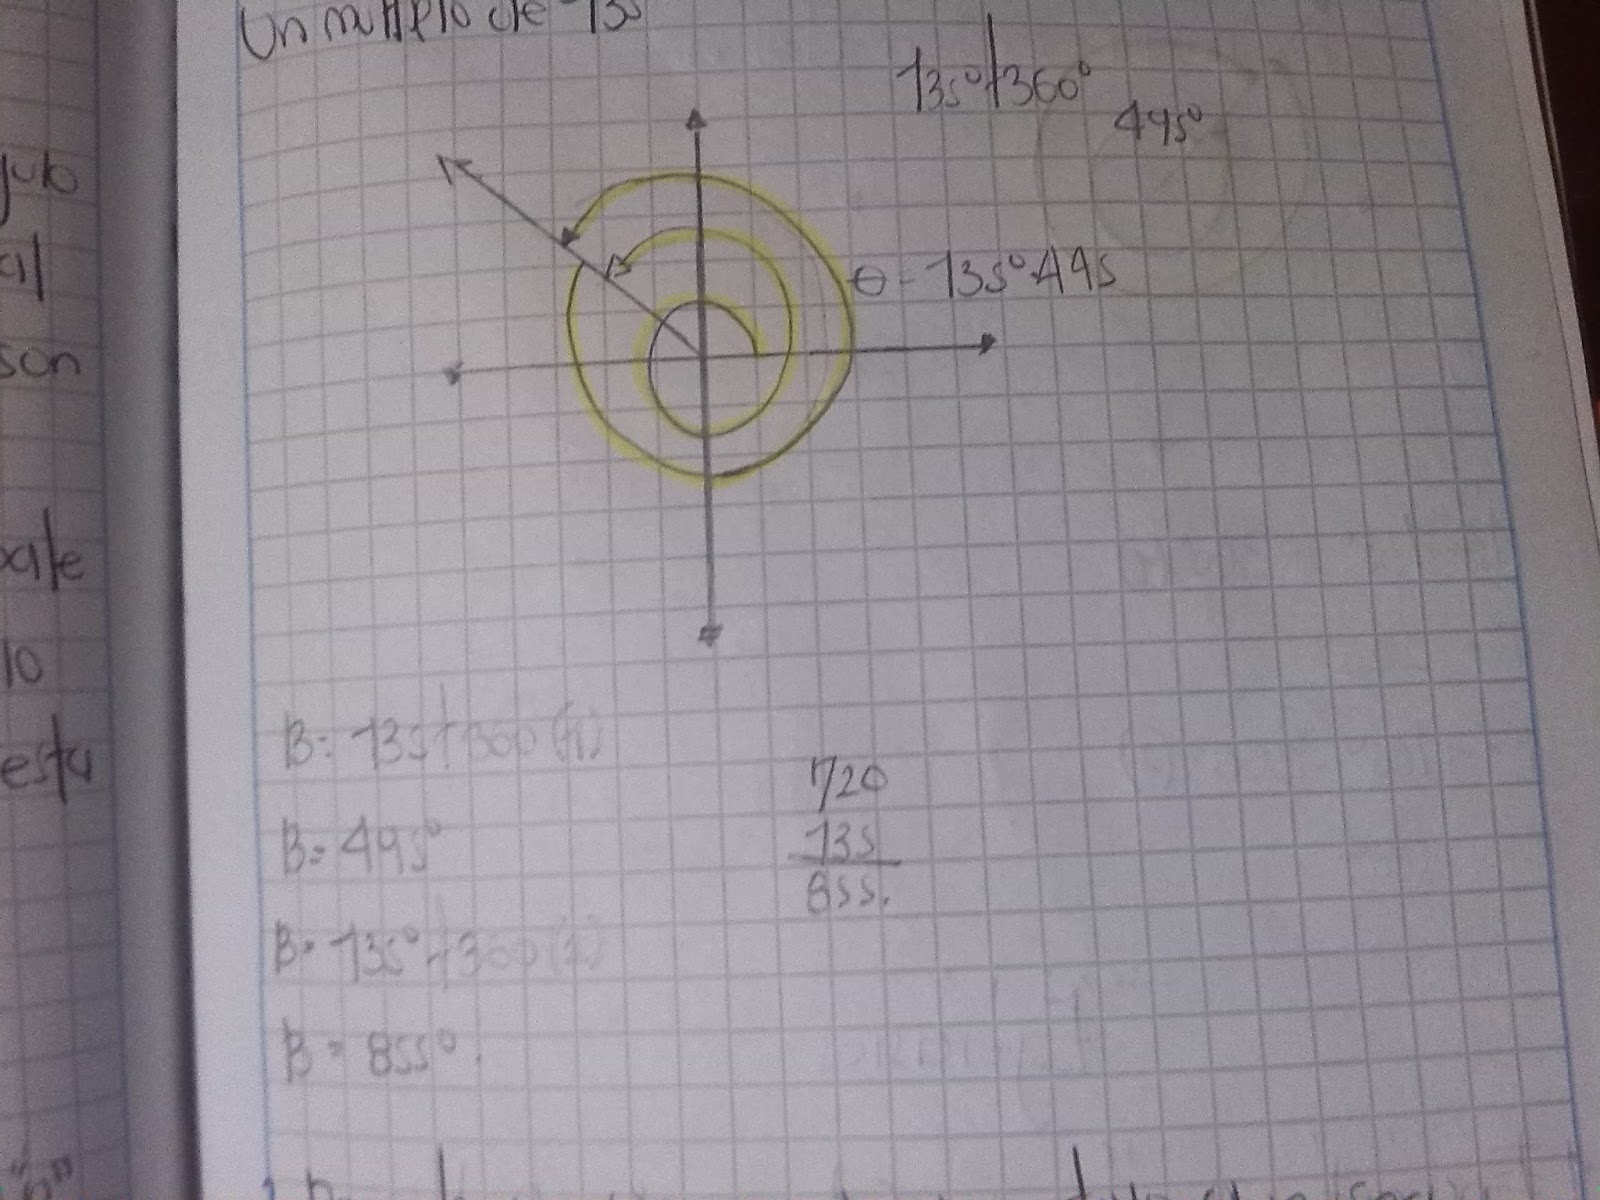 Un multiplo de 135
135°+360°
495°
θ - 135° 495
B= 135+360 (1)
720
135
855.
B= 495°
B= 135°+360(2)
B= 855°.
gulo
al
son
vale
lo
esta
"n"